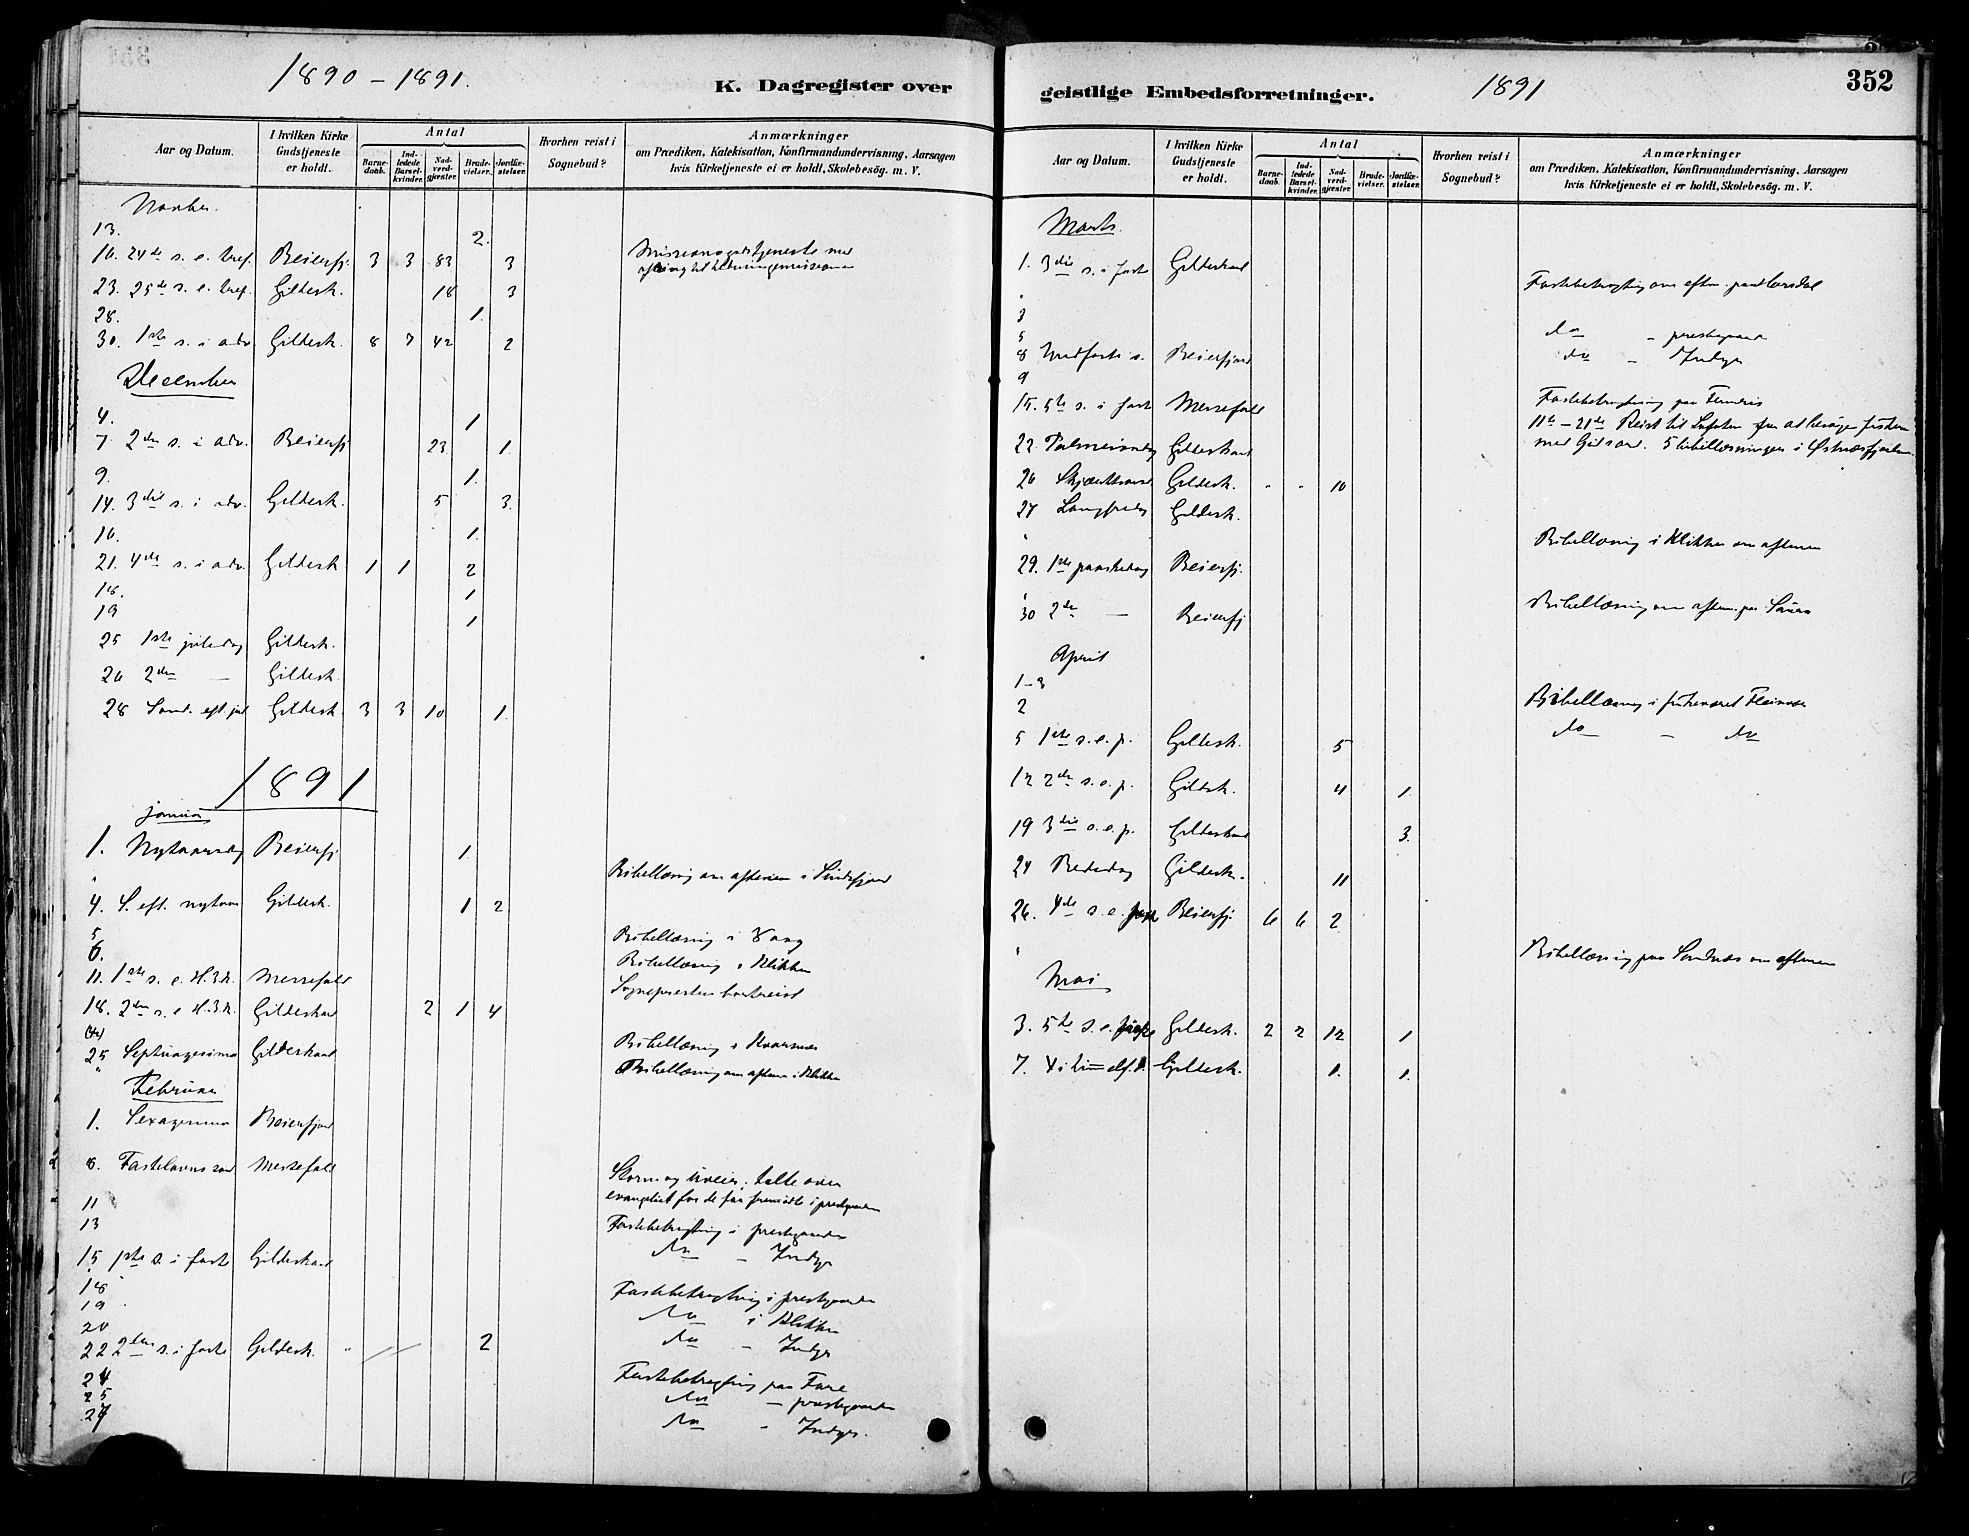 1890-1891.
K. Dagregister over
Aar og Datum.
I hvilken Kirke Gudstjeneste er holdt.
Antal
Barnedaab.
Indledede Barselkvinder.
Nadverdgjæster.
Brudevielser.
Jordfæstelser.
Hvorhen reist i Sognebud?
Anmærkninger
om Prædiken, Katekisation, Konfirmandundervisning, Aarsagen
hvis Kirketjeneste ei er holdt, Skolebesøg. m. V.
13. 2.
16. 24de s. e. tref. Beiersfj. 3 3 83 3
23. 25de s. e. tref. Gildesk. 18 3
28. 1.
30. 1ste s. i adv. Gildesk. 8 7 42 2
December
4. 1.
7. 2den s. i adv. Beiersfj 23 1.
9. 1.
14. 3die s. i adv. Gildesk. 5 3.
16. 1.
21. 4de s. i adv. Gildesk 1 1 2
18. 1
19 1
25 1ste juledag Gildesk.
26 2den — Gildesk.
28 Sønd. eft jul Gildesk. 3 3 10 1.
1891
januar
1. Nytaarsdag Beiersfj 1.
Bibellæsning om aftenen i
4. S. eft. nytaar Gildesk. 1 2
5 Bibellæsning i Vaag
6. Bibellæsning i Klikken
11. 1ste s. e. H.3.K. Messefald Sognepresten bortreist
18. 2den s. e H.3.K. Gildeskaal 2 1 4
Bibellæsning i
25 Septuagesima Gildeskaal
" Bibellæsning om aftenen i Klikken
Februar
1. Sexagesima Beiersfjord
8. Fastelavns sønd Messefald Storm og Uveir; talte over
evangeliet for de faa fremmødte i prestgaarden
11 Fastebetragtning i prestegaarden
13 do — Indyr
15 1ste s. i faste Gildeskaal
18 Fastebetragtning i prestegaarden
19 do i Klikken
20 do — Indyr
22 2den s. i faste Gildesk. 2
24 Fastebetragtning paa Fore
25 do — prestegaarden
27 do — Indyr.
geistlige Embedsforretninger.
1891
352
Aar og Datum.
I hvilken Kirke Gudstjeneste er holdt.
Antal
Barnedaab.
Indledede Barselkvinder.
Nadverdgjæster.
Brudevielser.
Jordfæstelser.
Hvorhen reist i Sognebud?
Anmærkninger
om Prædiken, Katekisation, Konfirmandundervisning, Aarsagen
hvis Kirketjeneste ei er holdt, Skolebesøg. m. V.
Marts.
1. 3die s. i faste Gildeskaal
" Fastebetragtning om eftm.
3 do — prestegaard
5 do — Indyr
8 Midfaste s. Beiersfjord
9 Fastebetragtning paa
15. 5te s. i faste Messefald 11te - 21de Reist til Lofoten for at besøge fiskerne
22 Palmesøndag Gildeskaal
26 Skjærthorsd Gildesk. " " 10
27 Langfredag Gildesk.
" Bibellæsning i Klikken om aftenen
29. 1ste paaskedag Beiersfj.
" Bibellæsning om aftenen paa
30 2den — Beiersfj
April
1-2 Bibellæsning i
2 do — do
5 1ste s. e. p. Gildesk. 5
12 2den s. e. p. Gildesk. 4 1.
19 3die s. e. p. Gildeskaal 3.
24 Bededag Gildesk. 11
26. 4de s. e. paaske Beiersfj. 6 6 2
" Bibellæsning paa Sandnæs om aftenen
Mai
3. 5te s. e. paaske Gildesk. 2 2 12 1
7. Kr. himmelf.d. Gildesk. 1. 1.